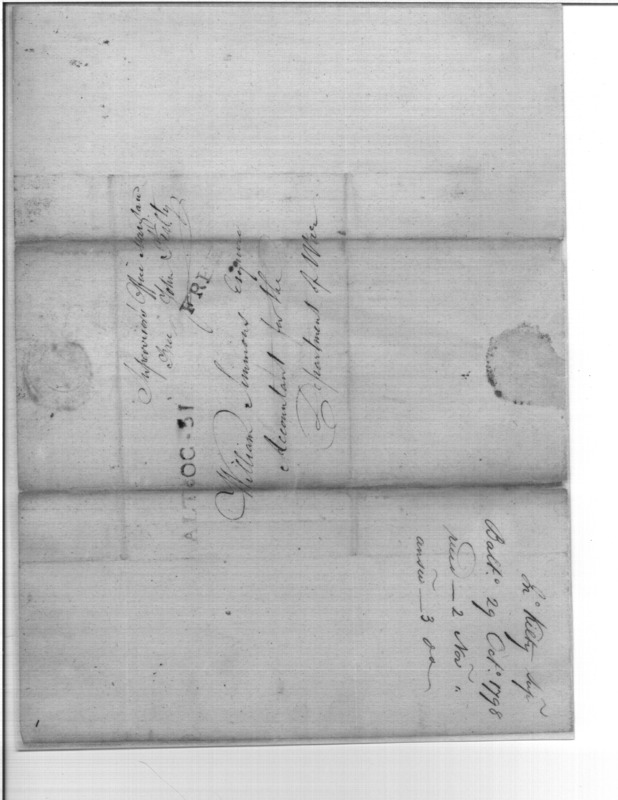 Supervisors Office Maryland
Free John Kilty
FRE
BALT OC-31
William Simmons Esquire
Accountant for the
Department of War
Jno Kilty Supr
Balto. 29 Octo. 1798
recd — 2 Novr "
answd — 3 do